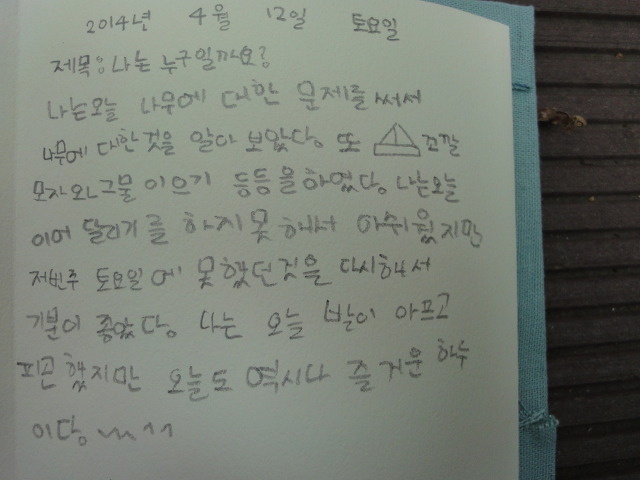 2014년 4월 12일 토요일
제목: 나는 누구일까요?
나는오늘 나무에 대한 문제를 써서
나무에 대한것을 알아 보았당. 또 꼬깔
모자와 그물 이으기 등등을하였당. 나는오늘
이어 달리기를 하지못해서 아쉬웠지만
저번주 토요일에 못했던것을 다시해서
기분이 좋았당. 나는 오늘 발이 아프고
피곤했지만 오늘도 역시나 즐거운 하루
이당 ~~^^